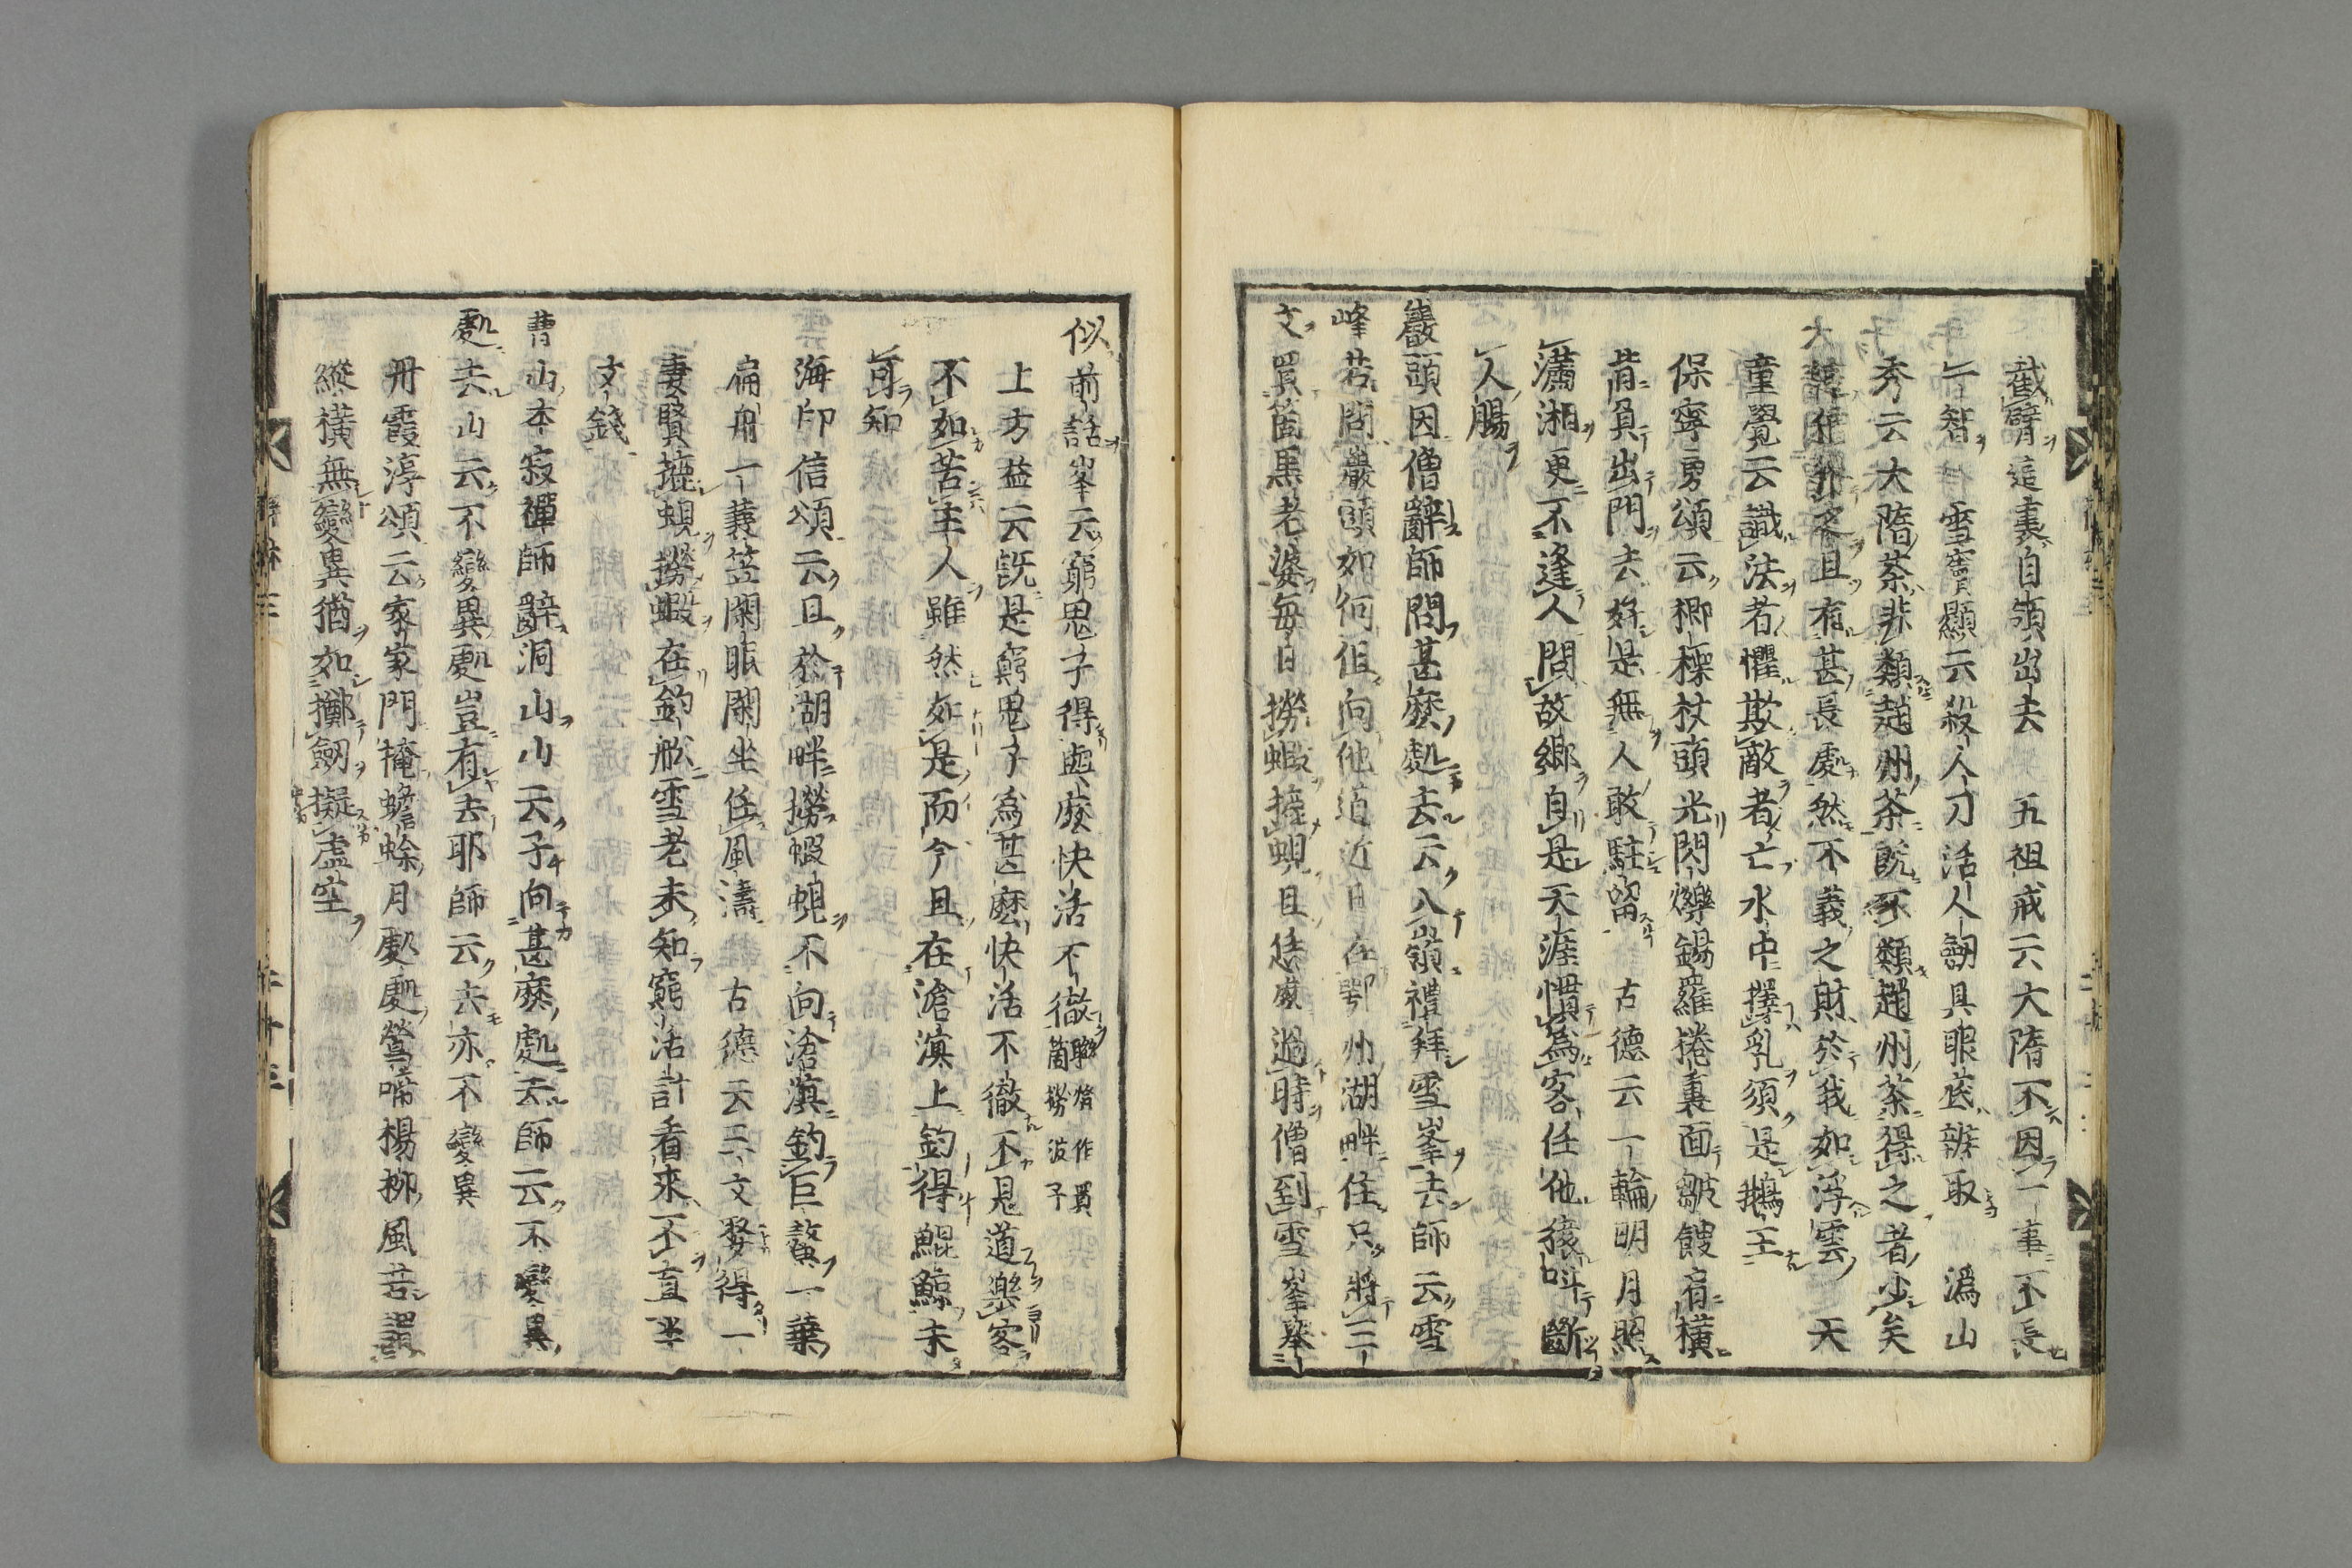 截臂這裏自領出去　五祖戒云大隋不因一事不長
一智　雪竇顯云殺人刀活人劒具眼底辨取　溈山
秀云大隋茶非類趙州茶既不類趙州茶得之者少矣
且有甚長處然不義之財於我如浮雲　天
童覺云識法者懼欺敵者亡水中擇乳須是鵝王
保寧勇頌云楖栗杖頭光閃爍錫羅捲裏面皺皵肩橫
背負出門去好是無人敢駐留　古德云一輪明月照
瀟湘更不逢人問故鄉自是天涯慣爲客任他猿叫斷
人腸
巖頭因僧辭師問甚麼處去云入嶺禮拜雪峯去師云雪
峰若問巖頭如何但向他道近日在鄂州湖畔住只將三
文買箇黑老婆每日撈蝦摝蜆且恁麼過時僧到雪峯舉
似前話峯云窮鬼子得與麼快活不徹聯燈作買箇撈波子
上方益云既是窮鬼子爲甚麼快活不徹不見道樂客
不如苦主人雖然如是而今且在滄溟上釣得鯤鯨未
可知
海印信頌云且於湖畔撈蝦蜆不向滄溟釣巨鼇一葉
扁舟一蓑笠閑眠閑坐任風濤　古德云三文娶得一
妻賢摝蜆撈蝦在釣船雪老未知窮活計看來不直半
文錢
曹山本寂禪師辭洞山山云子向甚麼處去師云不變異
處去山云不變異處豈有去耶師云去亦不變異
丹霞淳頌云家家門掩蟾蜍月處處鶯啼楊柳風若謂
縱橫無變異猶如擲劒擬虛空